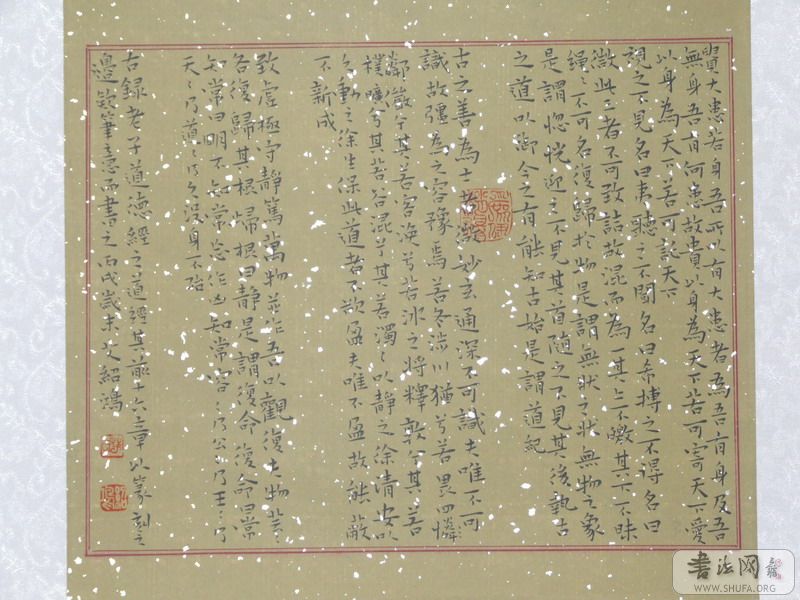 貴大患若身吾所以有大患者為吾有身及吾
無身吾有何患故貴以身為天下若可寄天下愛
以身為天下若可託天下
視之不見名曰夷聽之不聞名曰希搏之不得名曰
微此三者不可致詰故混而為一其上不皦其下不昧
繩々不可名復歸於物是謂無狀之狀無物之象
是謂惚恍迎之不見其首隨之不見其後執古
之道以御今之有能知古始是謂道紀
古之善為士者微妙玄通深不可識夫唯不可
識故彊為之容豫焉若冬涉川猶兮若畏四鄰
儼兮其若客渙兮若冰之將釋敦兮其若
樸曠兮其若谷混兮其若濁々以靜之徐清安以
久動之徐生保此道者不欲盈夫唯不盈故能蔽
不新成
致虛極守靜篤萬物並作吾以觀復夫物芸々
各復歸其根歸根曰靜是謂復命復命曰常
知常曰明不知常妄作凶知常容々乃公々乃王々乃
天々乃道々乃久沒身不殆
右錄老子道德經之道經其前十六章以篆刻之
邊款筆意而書之丙戌歲末艾紹鴻
書法网
WWW.SHUFA.ORG